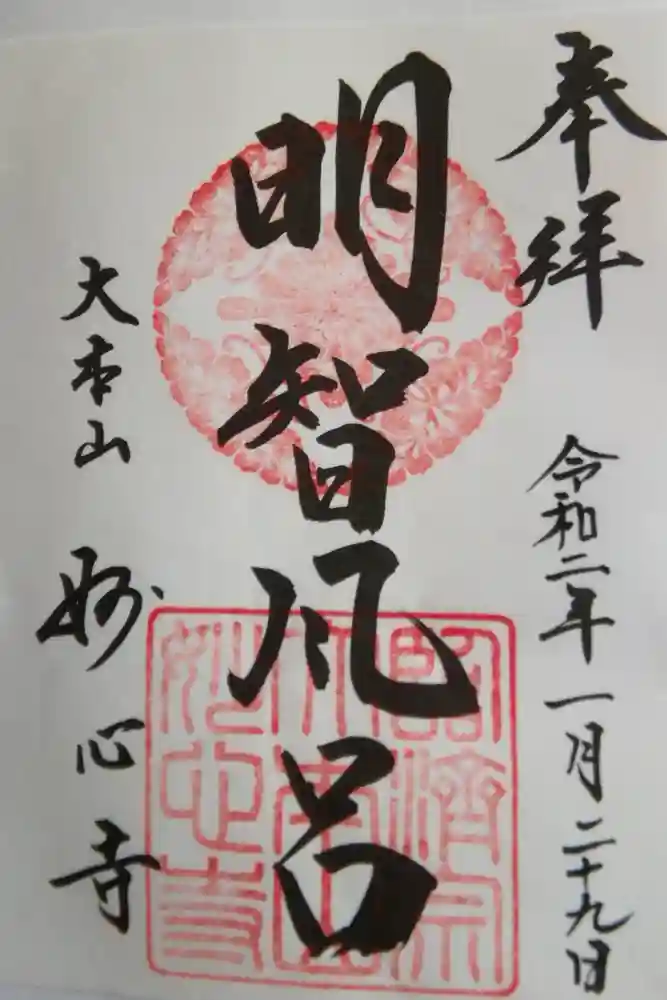 奉拝
令和二年一月二十九日
明智風呂
大本山 妙心寺
臨済宗
大本山
妙心寺